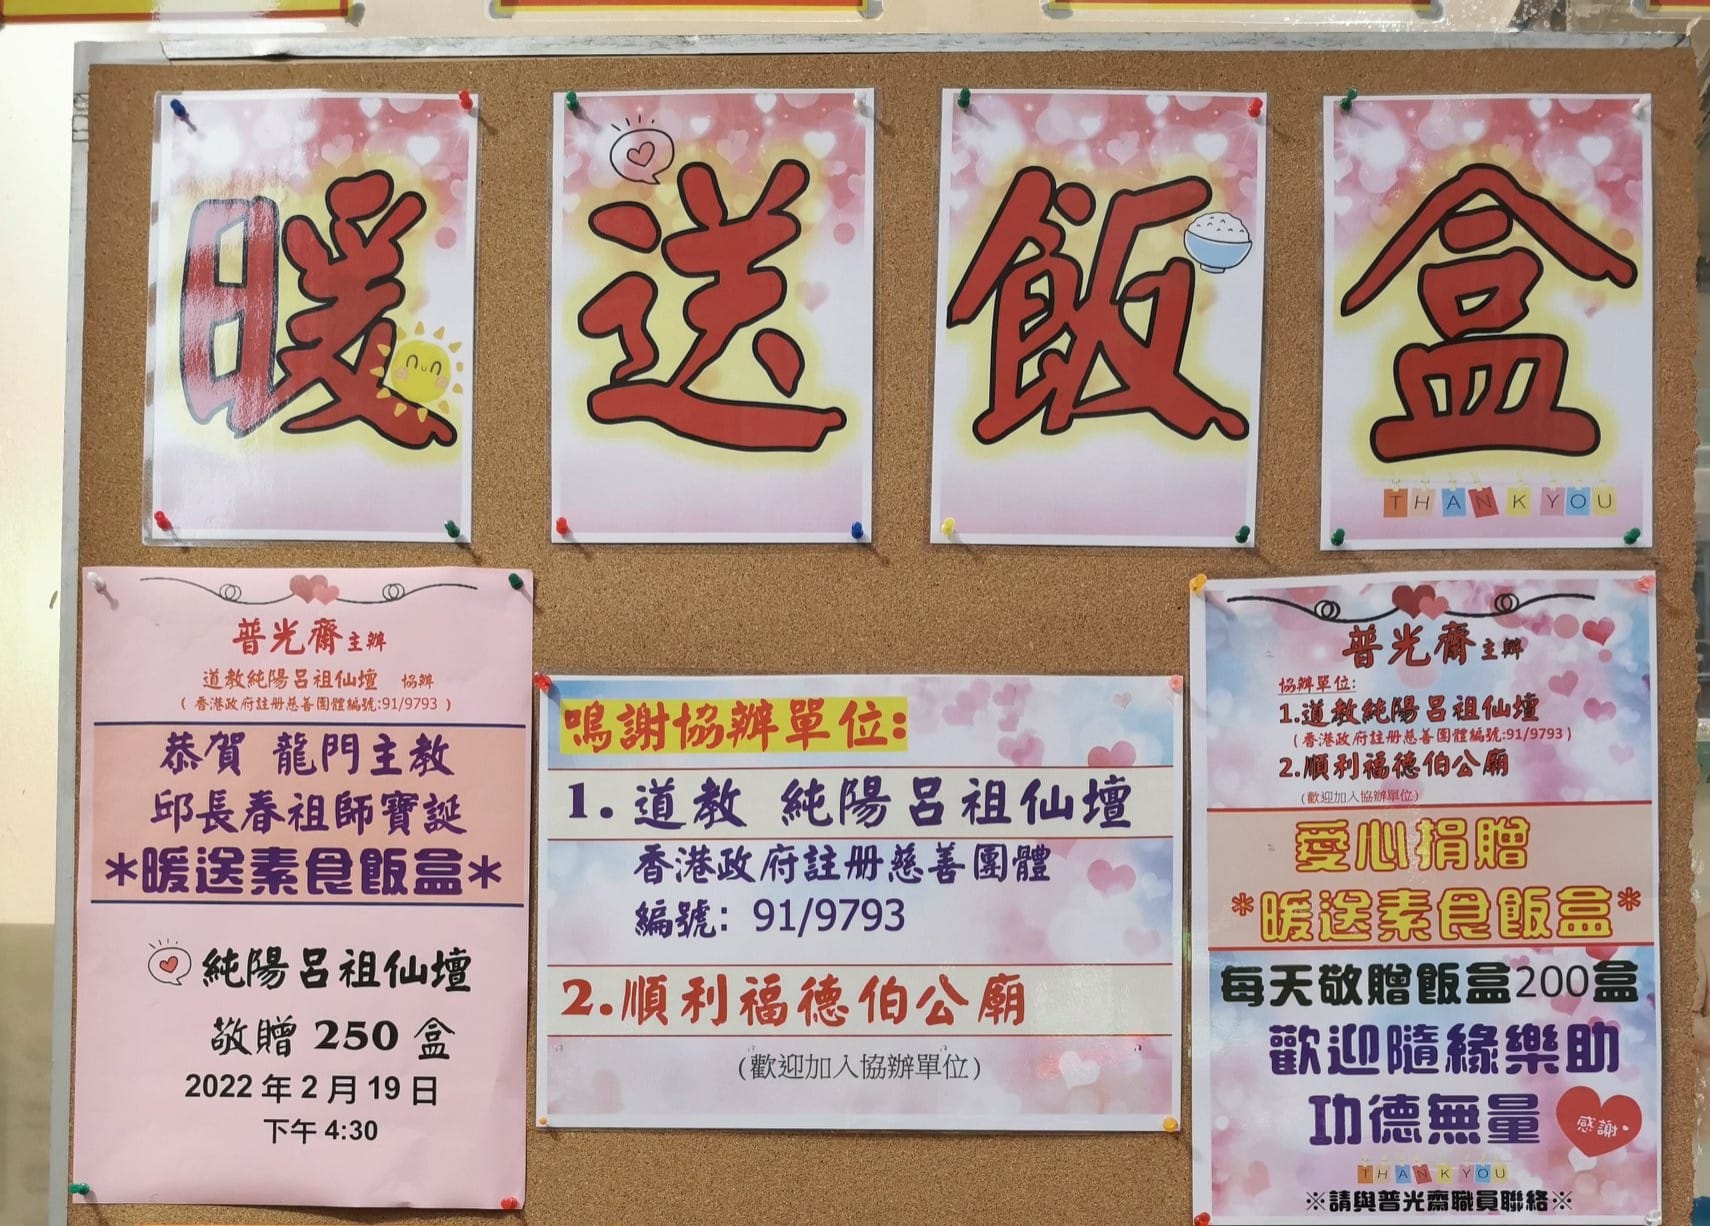 暖送飯盒
THANK YOU
普光齋 主辦
道教純陽呂祖仙壇 協辦
( 香港政府註册慈善團體編號:91/9793 )
恭賀 龍門主教
邱長春祖師寶誕
*暖送素食飯盒*
純陽呂祖仙壇
敬贈 250 盒
2022 年 2 月 19 日
下午 4:30
鳴謝協辦單位:
1. 道教 純陽呂祖仙壇
香港政府註册慈善團體
編號: 91/9793
2. 順利福德伯公廟
(歡迎加入協辦單位)
普光齋 主辦
協辦單位:
1.道教純陽呂祖仙壇
( 香港政府註册慈善團體編號:91/9793 )
2.順利福德伯公廟
(歡迎加入協辦單位)
愛心捐贈
*暖送素食飯盒*
每天敬贈飯盒200盒
歡迎隨緣樂助
功德無量
感謝.
THANK YOU
※請與普光齋職員聯絡※